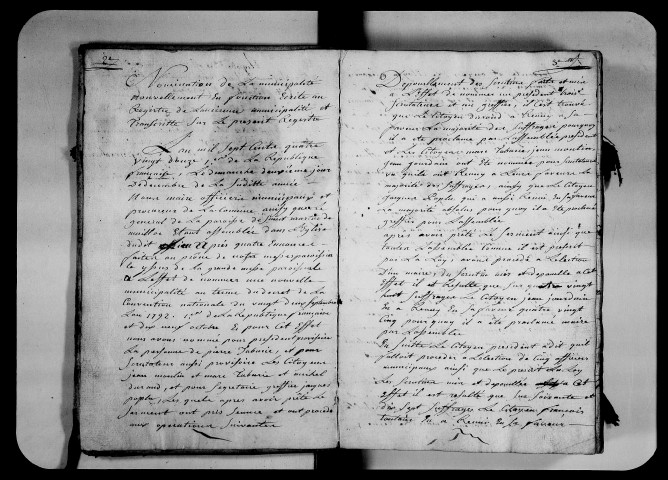 2e
Nomination de La municipalité
nouvellement En fonction Ecrite au
Registre de Lancienne municipalité et
transcritte Sur Le present Registre
Lan mil Sept Cents quatre
vingt douze 1er de La Republique
françaisse, Le dimanche deuxième jour
De decembre de La Suditte année
Nous maire officiers municipaux et
procureur de La Commune ainsy que le
general de La paroisse de Saint martin de
Etant assemblée dans L'Eglise
dudit après quatre
faites au prône de notre messe paroissiale
le de la grande messe paroissiale
a Leffet de nommer une nouvelle
municipalité au terme du decret de La
Convention nationale du vingt deux Septembre
Lan 1792. 1er de La Republique francaise
et dix neuf octobre & pour Cet Effet
nous avons nommé pour president provisoire
La personne de pierre Tabarie, et pour
Scrutateurs aussi provisoire Les Citoyens
jean moulin et marc Tabarie et michel
durand, et pour Segretaire greffier jacques
Lesquels apres avoir prêté Le
Serment ont pris Seance et ont procédé
aux operations Suivantes
3e
Depouillement des Scrutins faite et mis
a L'effet de nommer un president trois
Scrutateurs et un greffier, il C'est trouvé
que Le Citoyen durand a Reuny a Sa
faveur La majorité des Suffrages pourquoy
il a été proclamé par L'assemblée president
et Les Citoyens marc Tabarie, jean moulin,
jean jourdain ont été nommés pour Scrutateurs
vu quils ont Reuny a Leur faveurs La
majorité des Suffrages, ainsy que Le Citoyen
jacques qui a aussi Reuni En Sa faveur
La majorité absolue pour quoy il a été proclamé
greffier pour L'assemblée
après avoir prêté Le Serment ainsi que
toutes L'assemblée Comme il est prescrit
par La Loy, avons procédé a L'election
D'un maire, du Scrutin mis et depouillé a Cet
Effet il est Resulté que Sur vingt
huit Suffrages Le Citoyen jean jourdain
En a Reuny En Sa faveur quatre vingt
Cinq pourquoy il a été proclamé maire
par L'assemblée
En Suitte Le Citoyen president a dit quil
falloit proceder a L'election de Cinq officiers
municipaux ainsi que Le prescrit La Loy
Les Scrutins mis et depouillés a Cet
effet il est resulté que Sur Soixante et
dix Sept Suffrages Le Citoyen francois
En a Reuni En Sa faveur